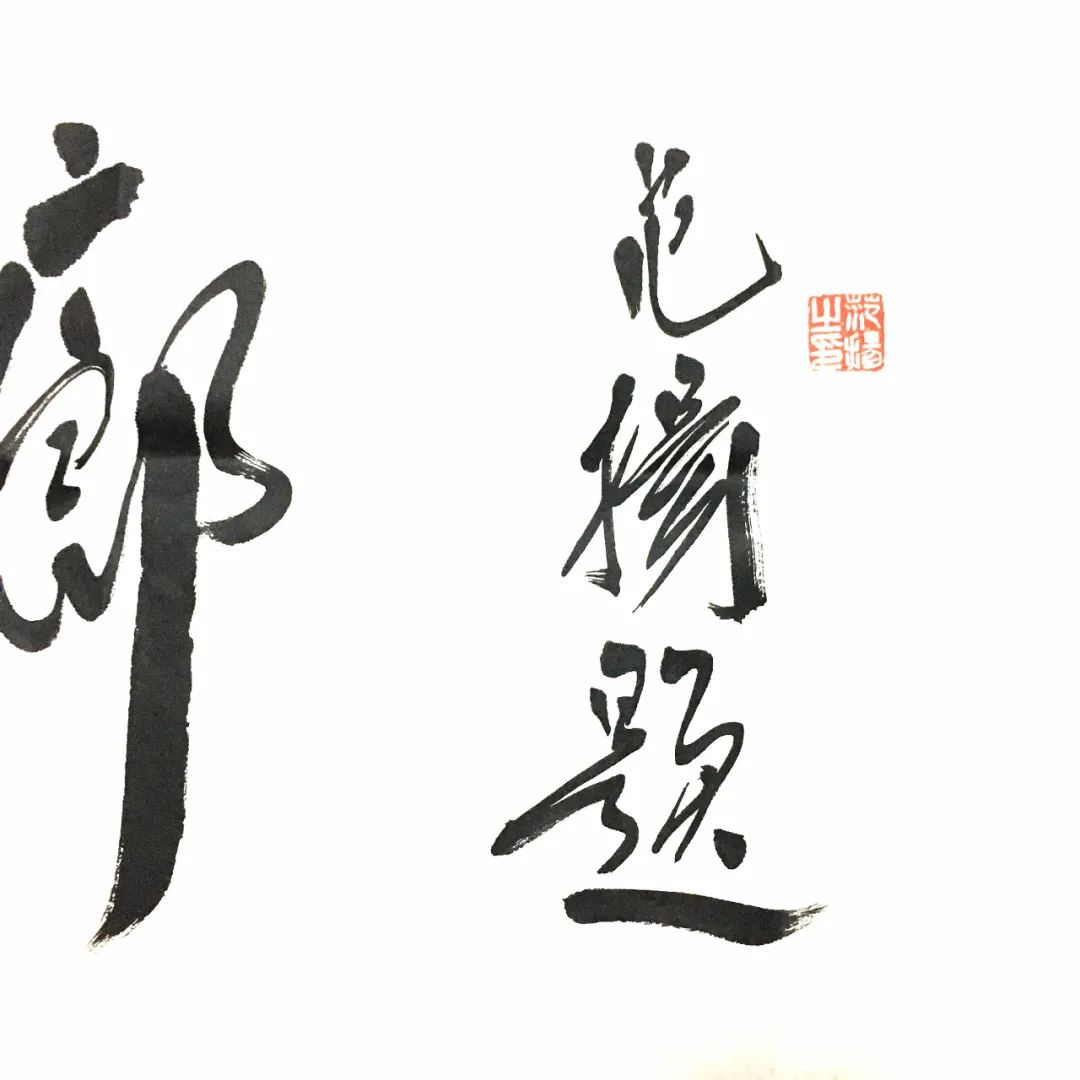 廊
范揚題
范揚之印